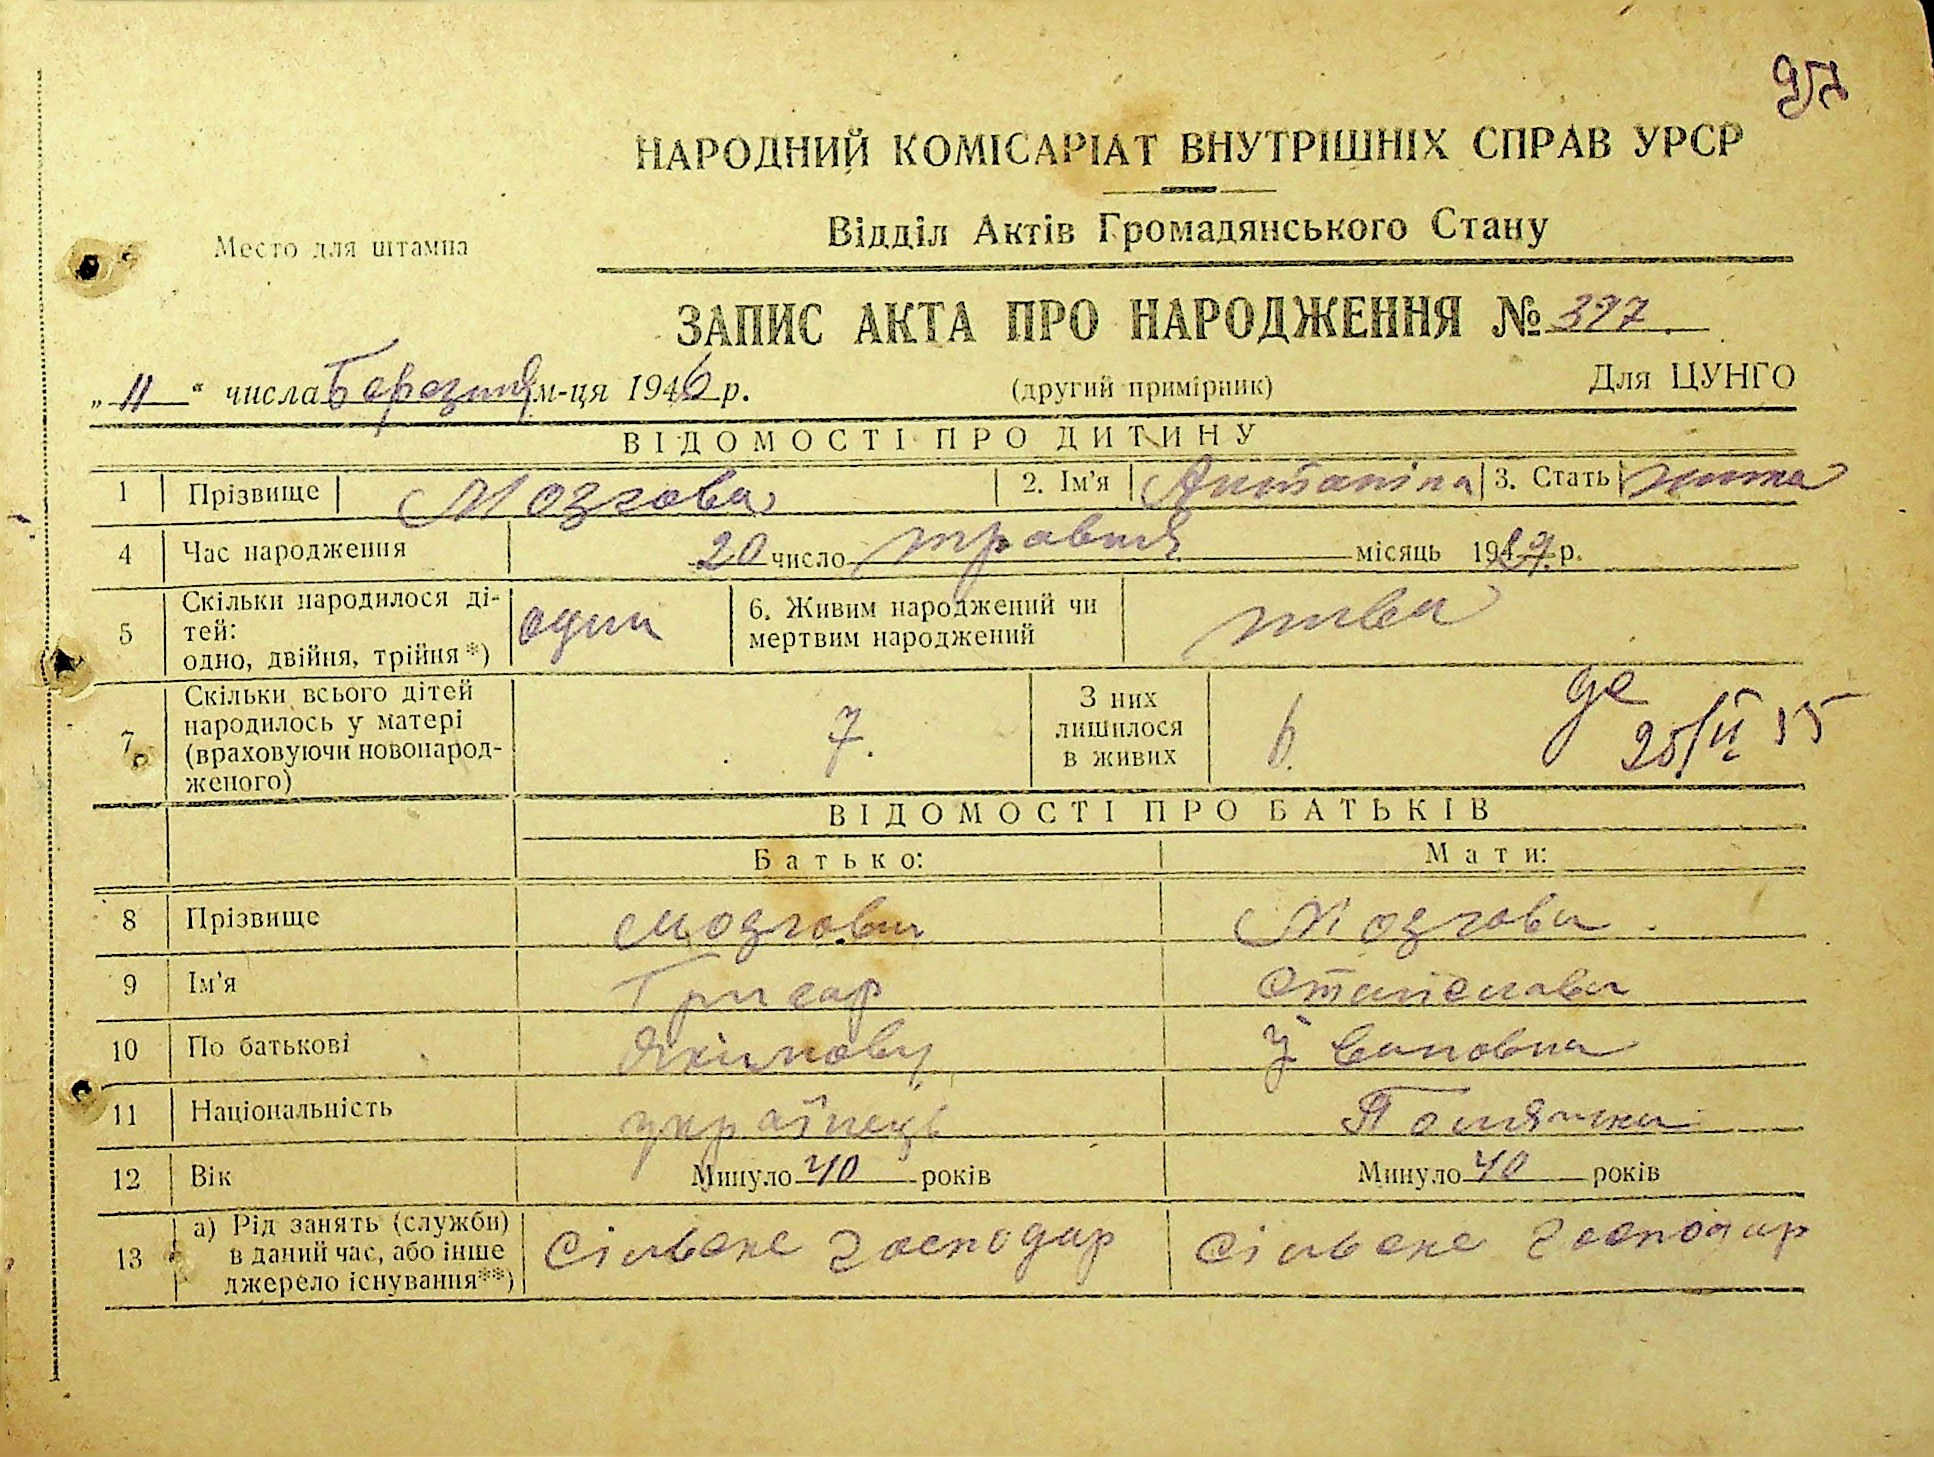 97
НАРОДНИЙ КОМІСАРІАТ ВНУТРІШНІХ СПРАВ УРСР
Место для штампа
Відділ Актів Громадянського Стану
ЗАПИС АКТА ПРО НАРОДЖЕННЯ № 397.
„ 11 “ числа Березня м-ця 1946 р. (другий примірник) Для ЦУНГО
ВІДОМОСТІ ПРО ДИТИНУ
1 Прізвище Мозгова 2. Ім'я Антаніна 3. Стать
4 Час народження 20 число травня місяць 19 р.
5 Скільки народилося ді-
тей:
одно, двійня, трійня*) один 6. Живим народжений чи
мертвим народжений жива
7 Скільки всього дітей
народилось у матері
(враховуючи новонарод-
женого) 7. З них
лишилося
в живих 6.
ВІДОМОСТІ ПРО БАТЬКІВ
Батько: Мати:
8 Прізвище Мозгови Мозгова
9 Ім'я Станіслава
10 По батькові Якімову Івановна
11 Національність українець Полячка
12 Вік Минуло 40 років Минуло 40 років
13 а) Рід занять (служби)
в даний час, або інше
джерело існування**) Сільске господар Сільске господар